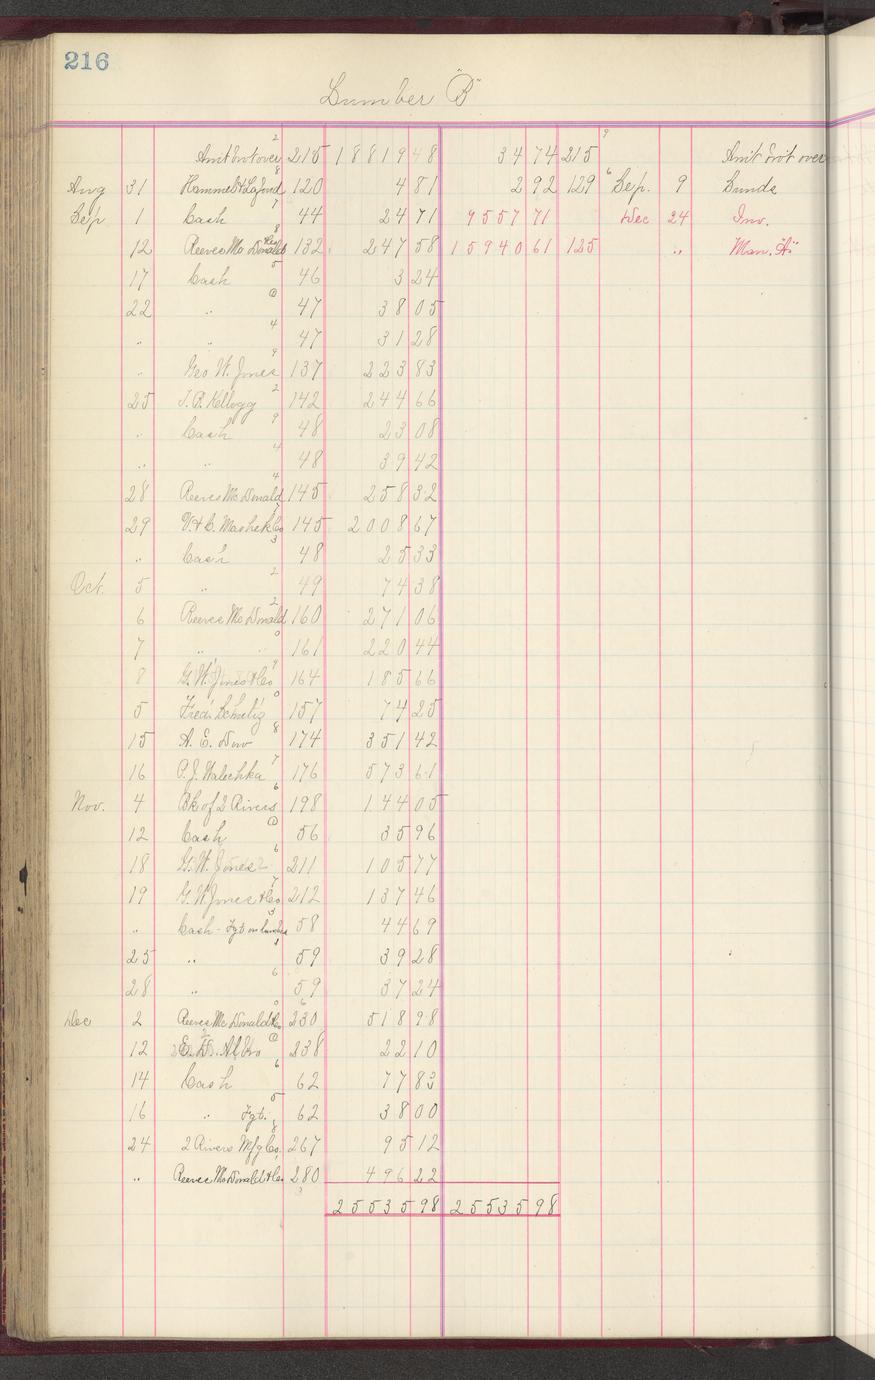 216
Lumber "B"
2
Amt brot over 215 18819 48 34 74 215 9 Amt brot over
Aug 31 Hammel & Lafond 8 120 4 81 2 92 129 6 Sep. 9 Sunds
Sep 1 Cash 7 44 24 71 9557 71 Dec 24 Inv.
12 Reeves McDonald & Co 8 132 247 58 15940 61 125 " Man. "A"
17 Cash 5 46 3 24
22 " 0 47 38 05
" " 4 47 31 28
" Geo W. Jones 9 137 223 83
25 J. P. Kellogg 2 142 244 66
" Cash 9 48 23 08
" " 4 48 39 42
28 Reeves McDonald 4 145 258 32
29 V. & C. Mashek Co 7 145 2008 67
" Cash 3 48 25 33
Oct. 5 " 2 49 74 38
6 Reeves McDonald 2 160 271 06
7 " " 0 161 220 44
8 G. W. Jones & Co 9 164 185 66
5 Fred. Schultz 0 157 74 25
15 A. E. Dow 8 174 351 42
16 P. J. Walechka 7 176 573 61
Nov. 4 Bk of 2 Rivers 6 198 144 05
12 Cash 0 56 35 96
18 G. W. Jones 6 211 105 77
19 G. W. Jones & Co 7 212 137 46
" Cash - Fgt on lumber 3 58 44 69
25 " 1 59 39 28
28 " 6 59 37 24
Dec 2 Reeves McDonald & Co 0 230 518 98
12 E. D. 0 238 22 10
14 Cash 6 62 77 83
16 " Fgt. 5 62 38 00
24 2 Rivers Mfg Co. 8 267 95 12
" Reeves McDonald & Co. 280 496 22
3 25535 98 25535 98